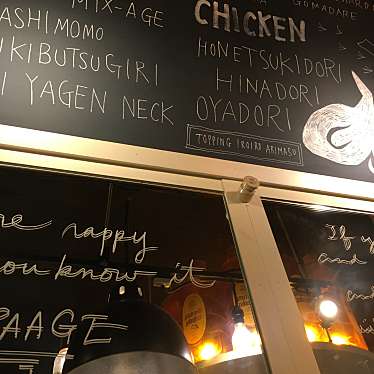 MIX-AGE
ASHIMOMO
KIBUTSUGIRI
YAGEN NECK
CHICKEN
GOMADARE
HONETSUKIDORI
HINADORI
OYADORI
TOPPING IROIRO ARIMASU
re happy
ou know it
AAGE
If y
and
and